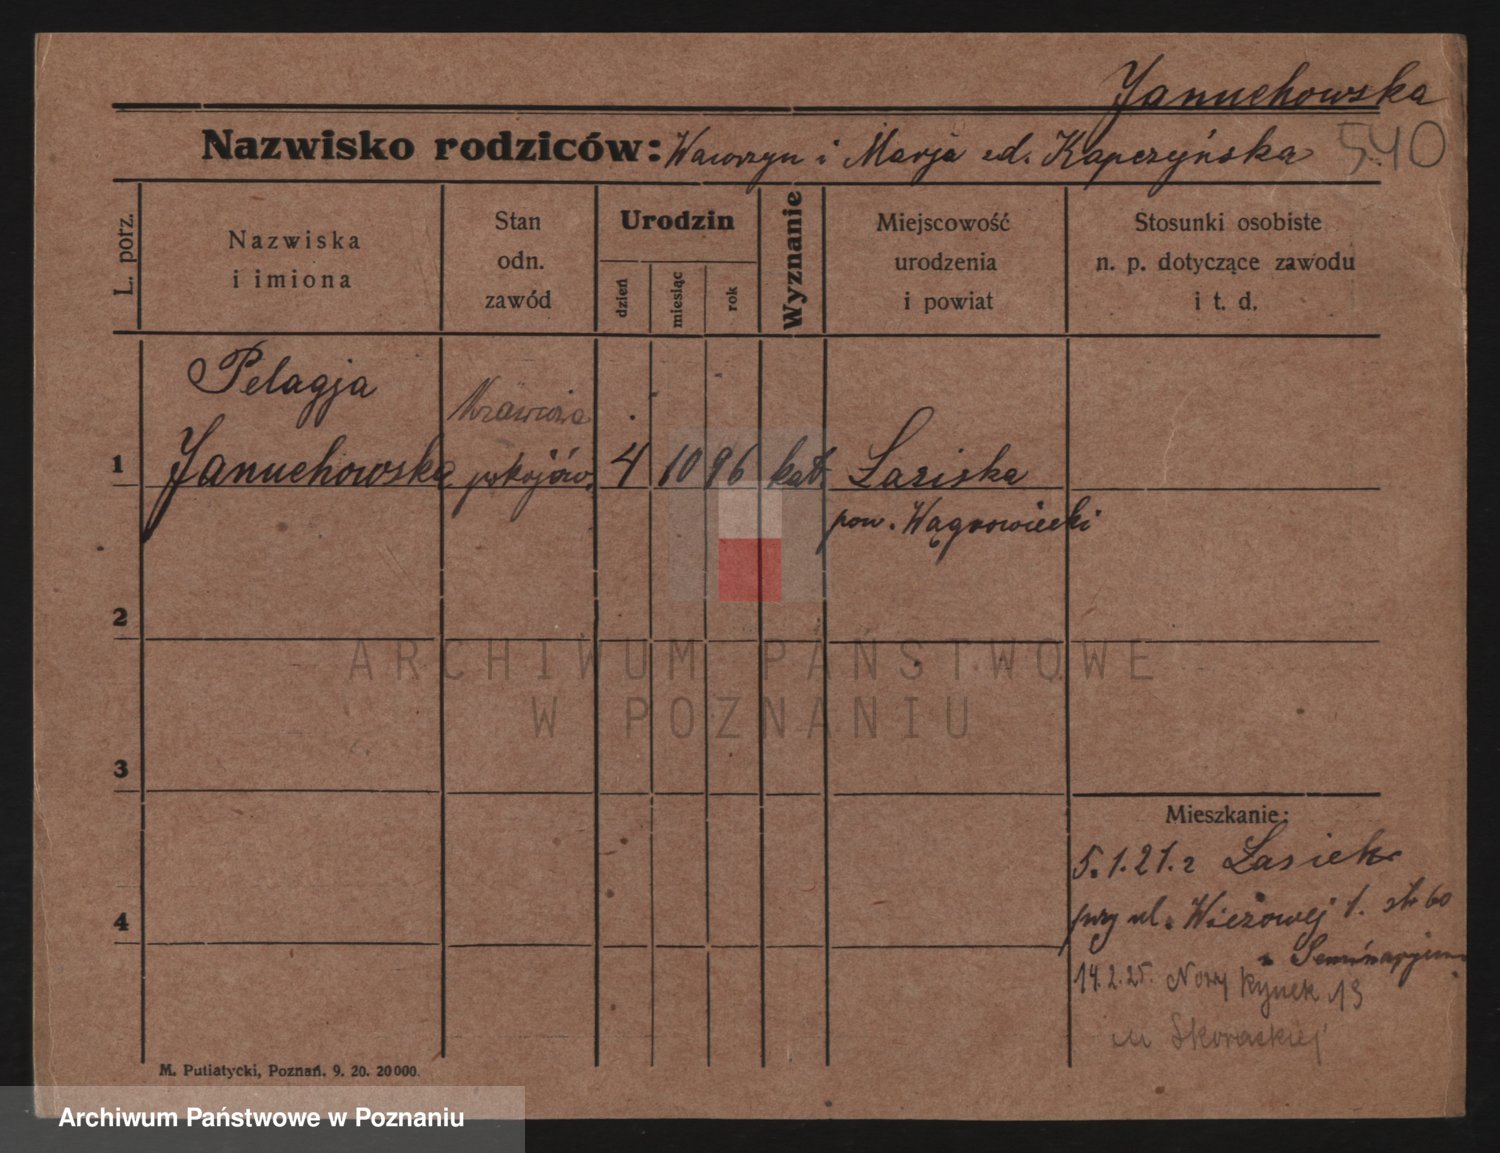 Januchowska
Nazwisko rodziców: Wawrzyn i Marja zd. Kapczyńska 540
L. porz.
Nazwiska
i imiona
Stan
odn.
zawód
Urodzin
dzień
miesiąc
rok
Wyznanie
Miejscowość
urodzenia
i powiat
Stosunki osobiste
n. p. dotyczące zawodu
i t. d.
Pelagja
Krawcowa
1 Januchowska pokojów. 4 10 96 kat Laziska
pow. Wągrowiecki
2
ARCHIWUM PAŃSTWOWE
W POZNANIU
3
Mieszkanie:
5.1.21. z Lasiek
przy ul. Wieżowej 1. str 60
Seminarjum
4
14.2.25. Nowy Rynek 13
u Skorackiej
M. Putiatycki, Poznań. 9. 20. 20000.
Archiwum Państwowe w Poznaniu